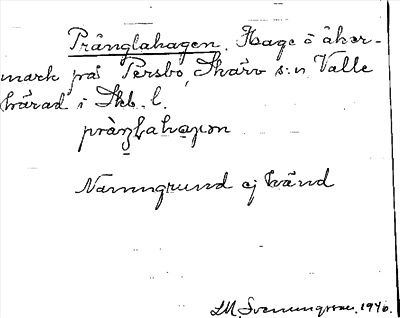 Prånglahagen. Hage o åker-
mark på Persbo, Skärv s:n Valle
härad i Skb. l.
Namngrund ej känd
Svenungsson. 1940.